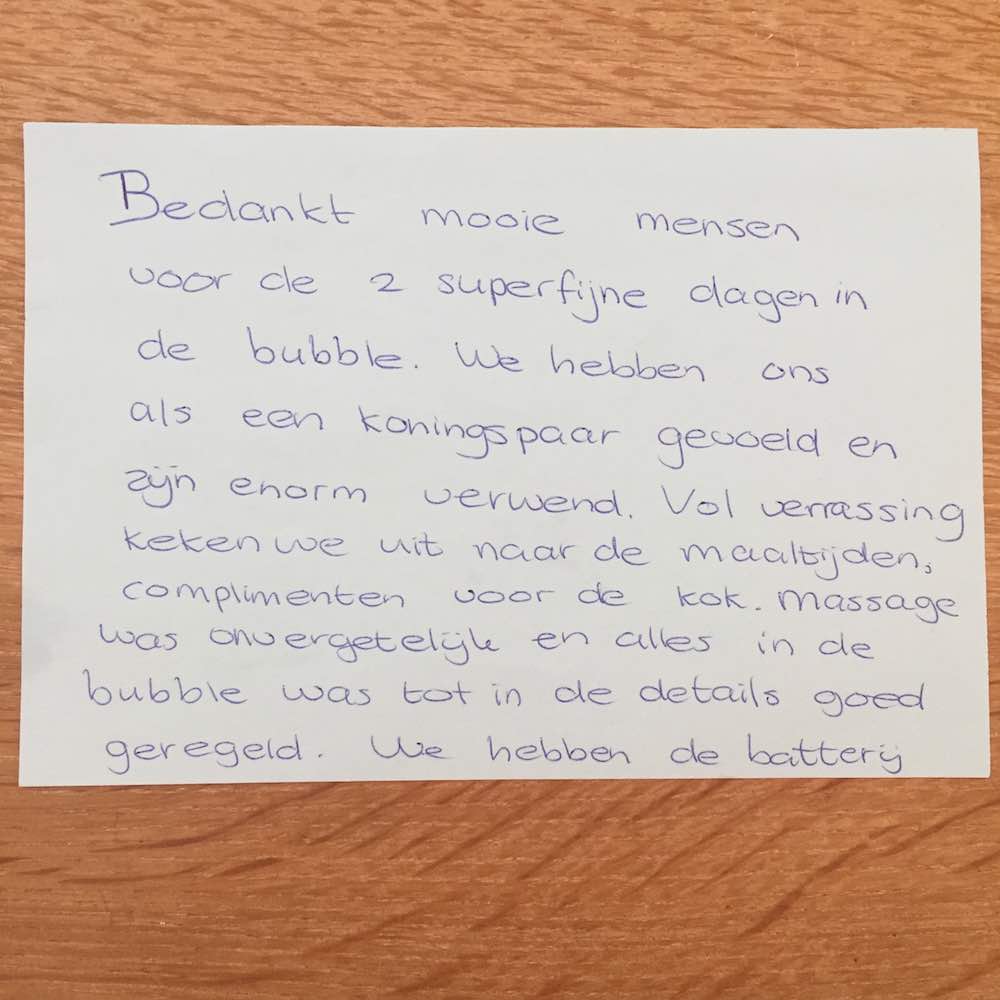 Bedankt mooie mensen
voor de 2 superfijne dagen in
de bubble. We hebben ons
als een koningspaar gevoeld en
zijn enorm verwend. Vol verrassing
keken we uit naar de maaltijden,
complimenten voor de kok. Massage
was onvergetelijk en alles in de
bubble was tot in de details goed
geregeld. We hebben de batterij